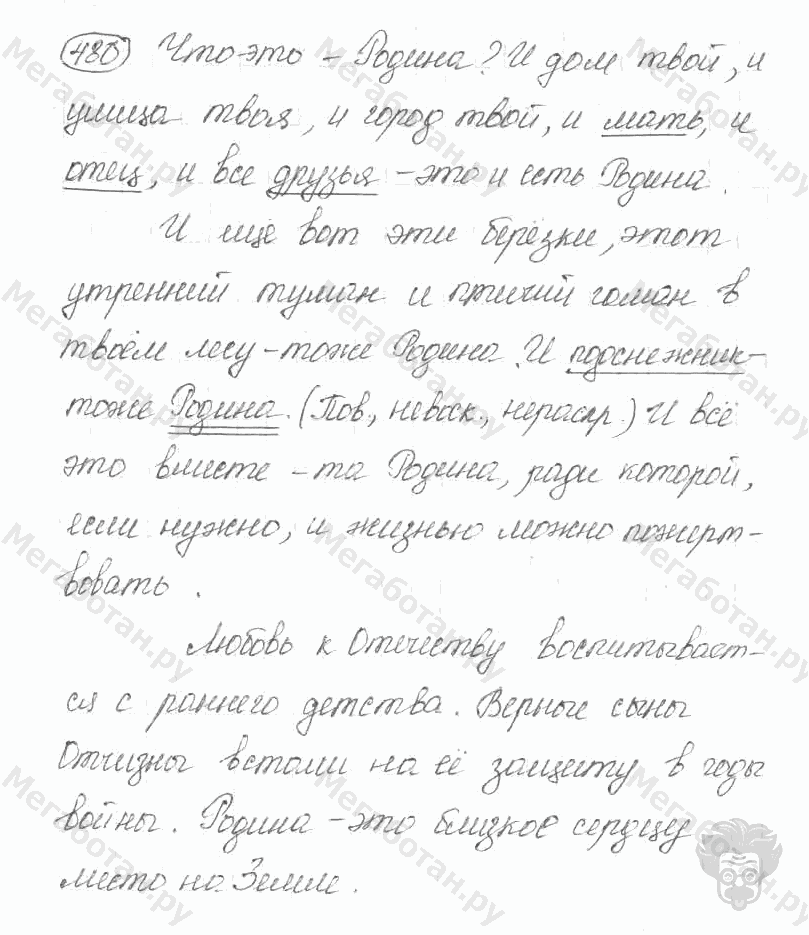 480 Что это – Родина? И дом твой, и
улица твоя, и город твой, и мать, и
отец, и все друзья – это и есть Родина.
И ещё вот эти берёзки, этот
утренний туман и птичий гомон в
твоём лесу – тоже Родина. И подснежник –
тоже Родина. (Пов., невоск., нераспр.) И всё
это вместе – та Родина, ради которой,
если нужно, и жизнью можно пожерт-
вовать.
Любовь к Отечеству воспитывает-
ся с раннего детства. Верные сыны
Отчизны встали на её защиту в годы
войны. Родина – это близкое сердцу
место на Земле.
Мегаботан.ру